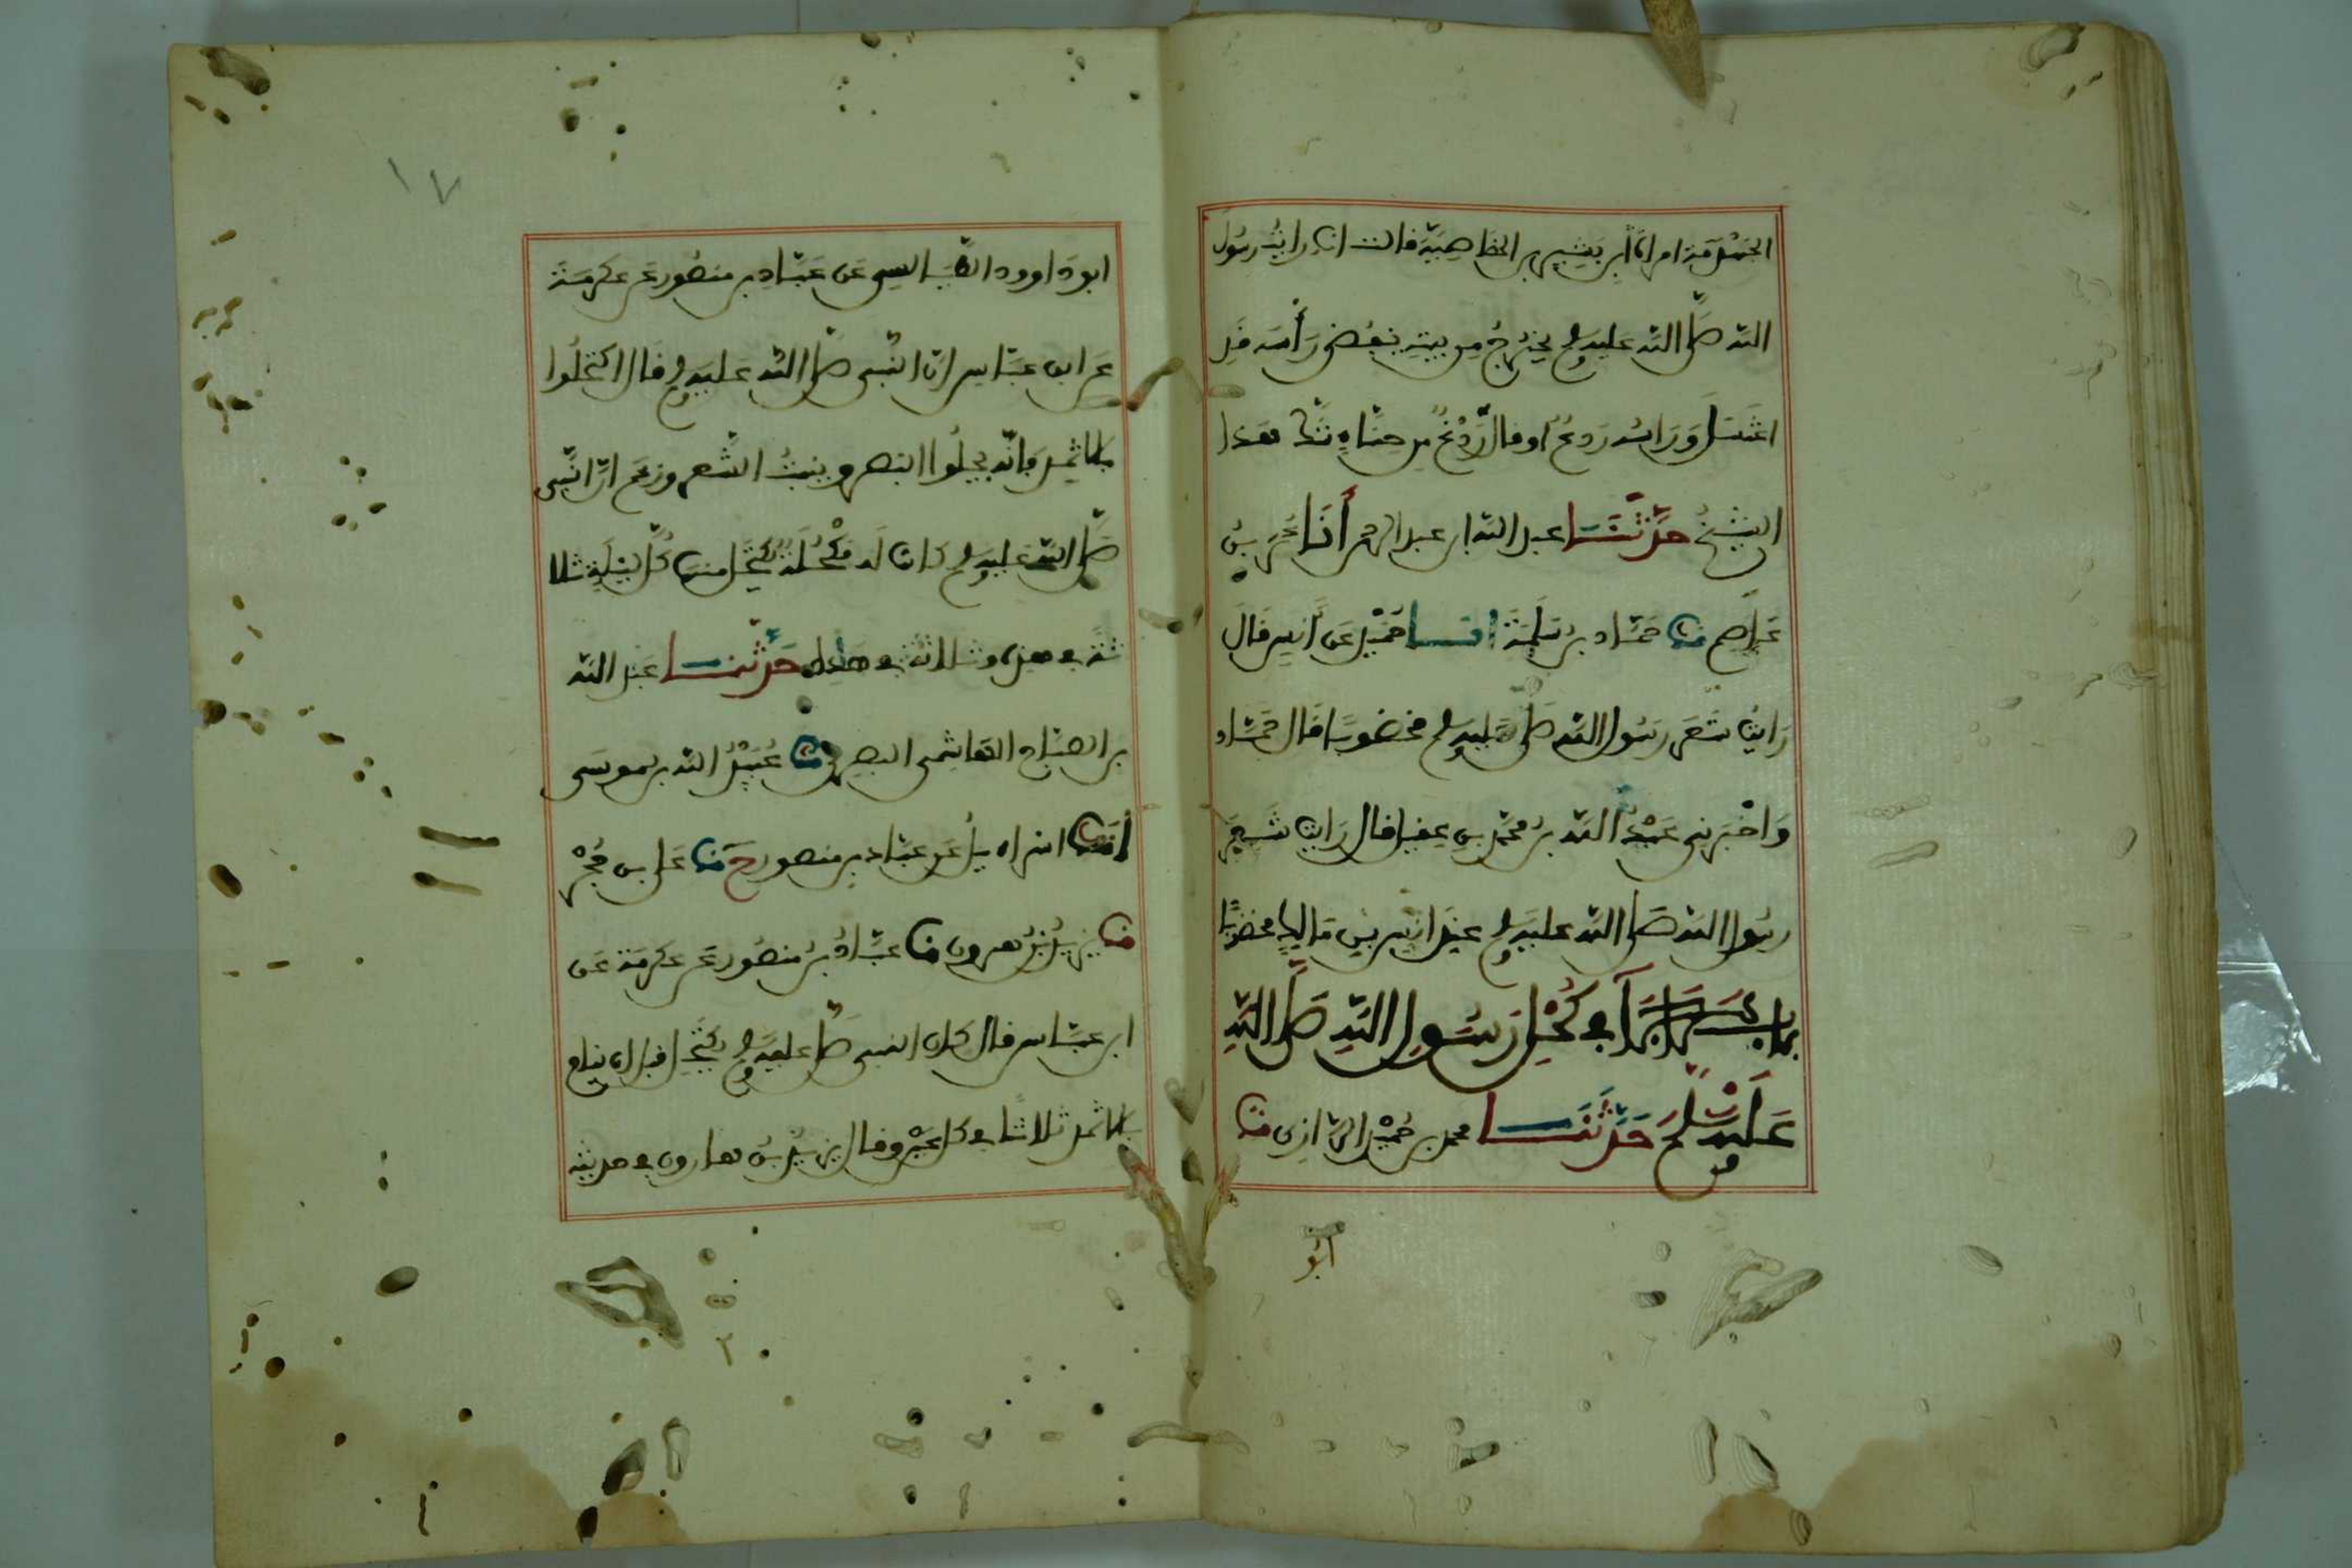 الجهذمة امراة بشير بن الخصاصية قالت انا رايت رسول
الله صلى الله عليه وسلم يخرج من بيته ينفض رأسه قد
اغتسل وبراسه ردع او قال ردغ من حناء شك هذا
الشيخ حدثنا عبد الله بن عبد الرحمن أنا عمرو بن
عاصم نا حماد بن سلمة انا حميد عن أنس قال
رايت شعر رسول الله صلى الله عليه وسلم مخضوبا قال حماد
واخبرني عبد الله بن محمد بن عقيل قال رايت شعر
رسول الله صلى الله عليه وسلم عند انس بن مالك مخضوبا
باب ما جآء في كحل رسول الله صلى الله
عليه وسلم حدثنا محمد بن حميد الرازي نا
ابو
١٧
ابو داوود الطيالسي عن عباد بن منصور عن عكرمة
عن ابن عباس ان النبي صلى الله عليه وسلم قال اكتحلوا
بالاثمد فانه يجلوا البصر وينبت الشعر وزعم ان النبي
صلى الله عليه وسلم كانت له مكحلة يكتحل منها كل ليلة ثلا
ثة في هذه وثلاثة في هذه حدثنا عبد الله
بن الصباح الهاشمي البصري نا عبيد الله بن موسى
أنا اسراءيل عن عباد بن منصور ح نا علي بن حجر
نا يزيد بن هرون نا عباد بن منصور عن عكرمة عن
ابن عباس قال كان النبي صلى عليه وسلم يكتحل قبل ان ينام
بالاثمد ثلاثا في كل عين وقال يزيد بن هارون في حديثه